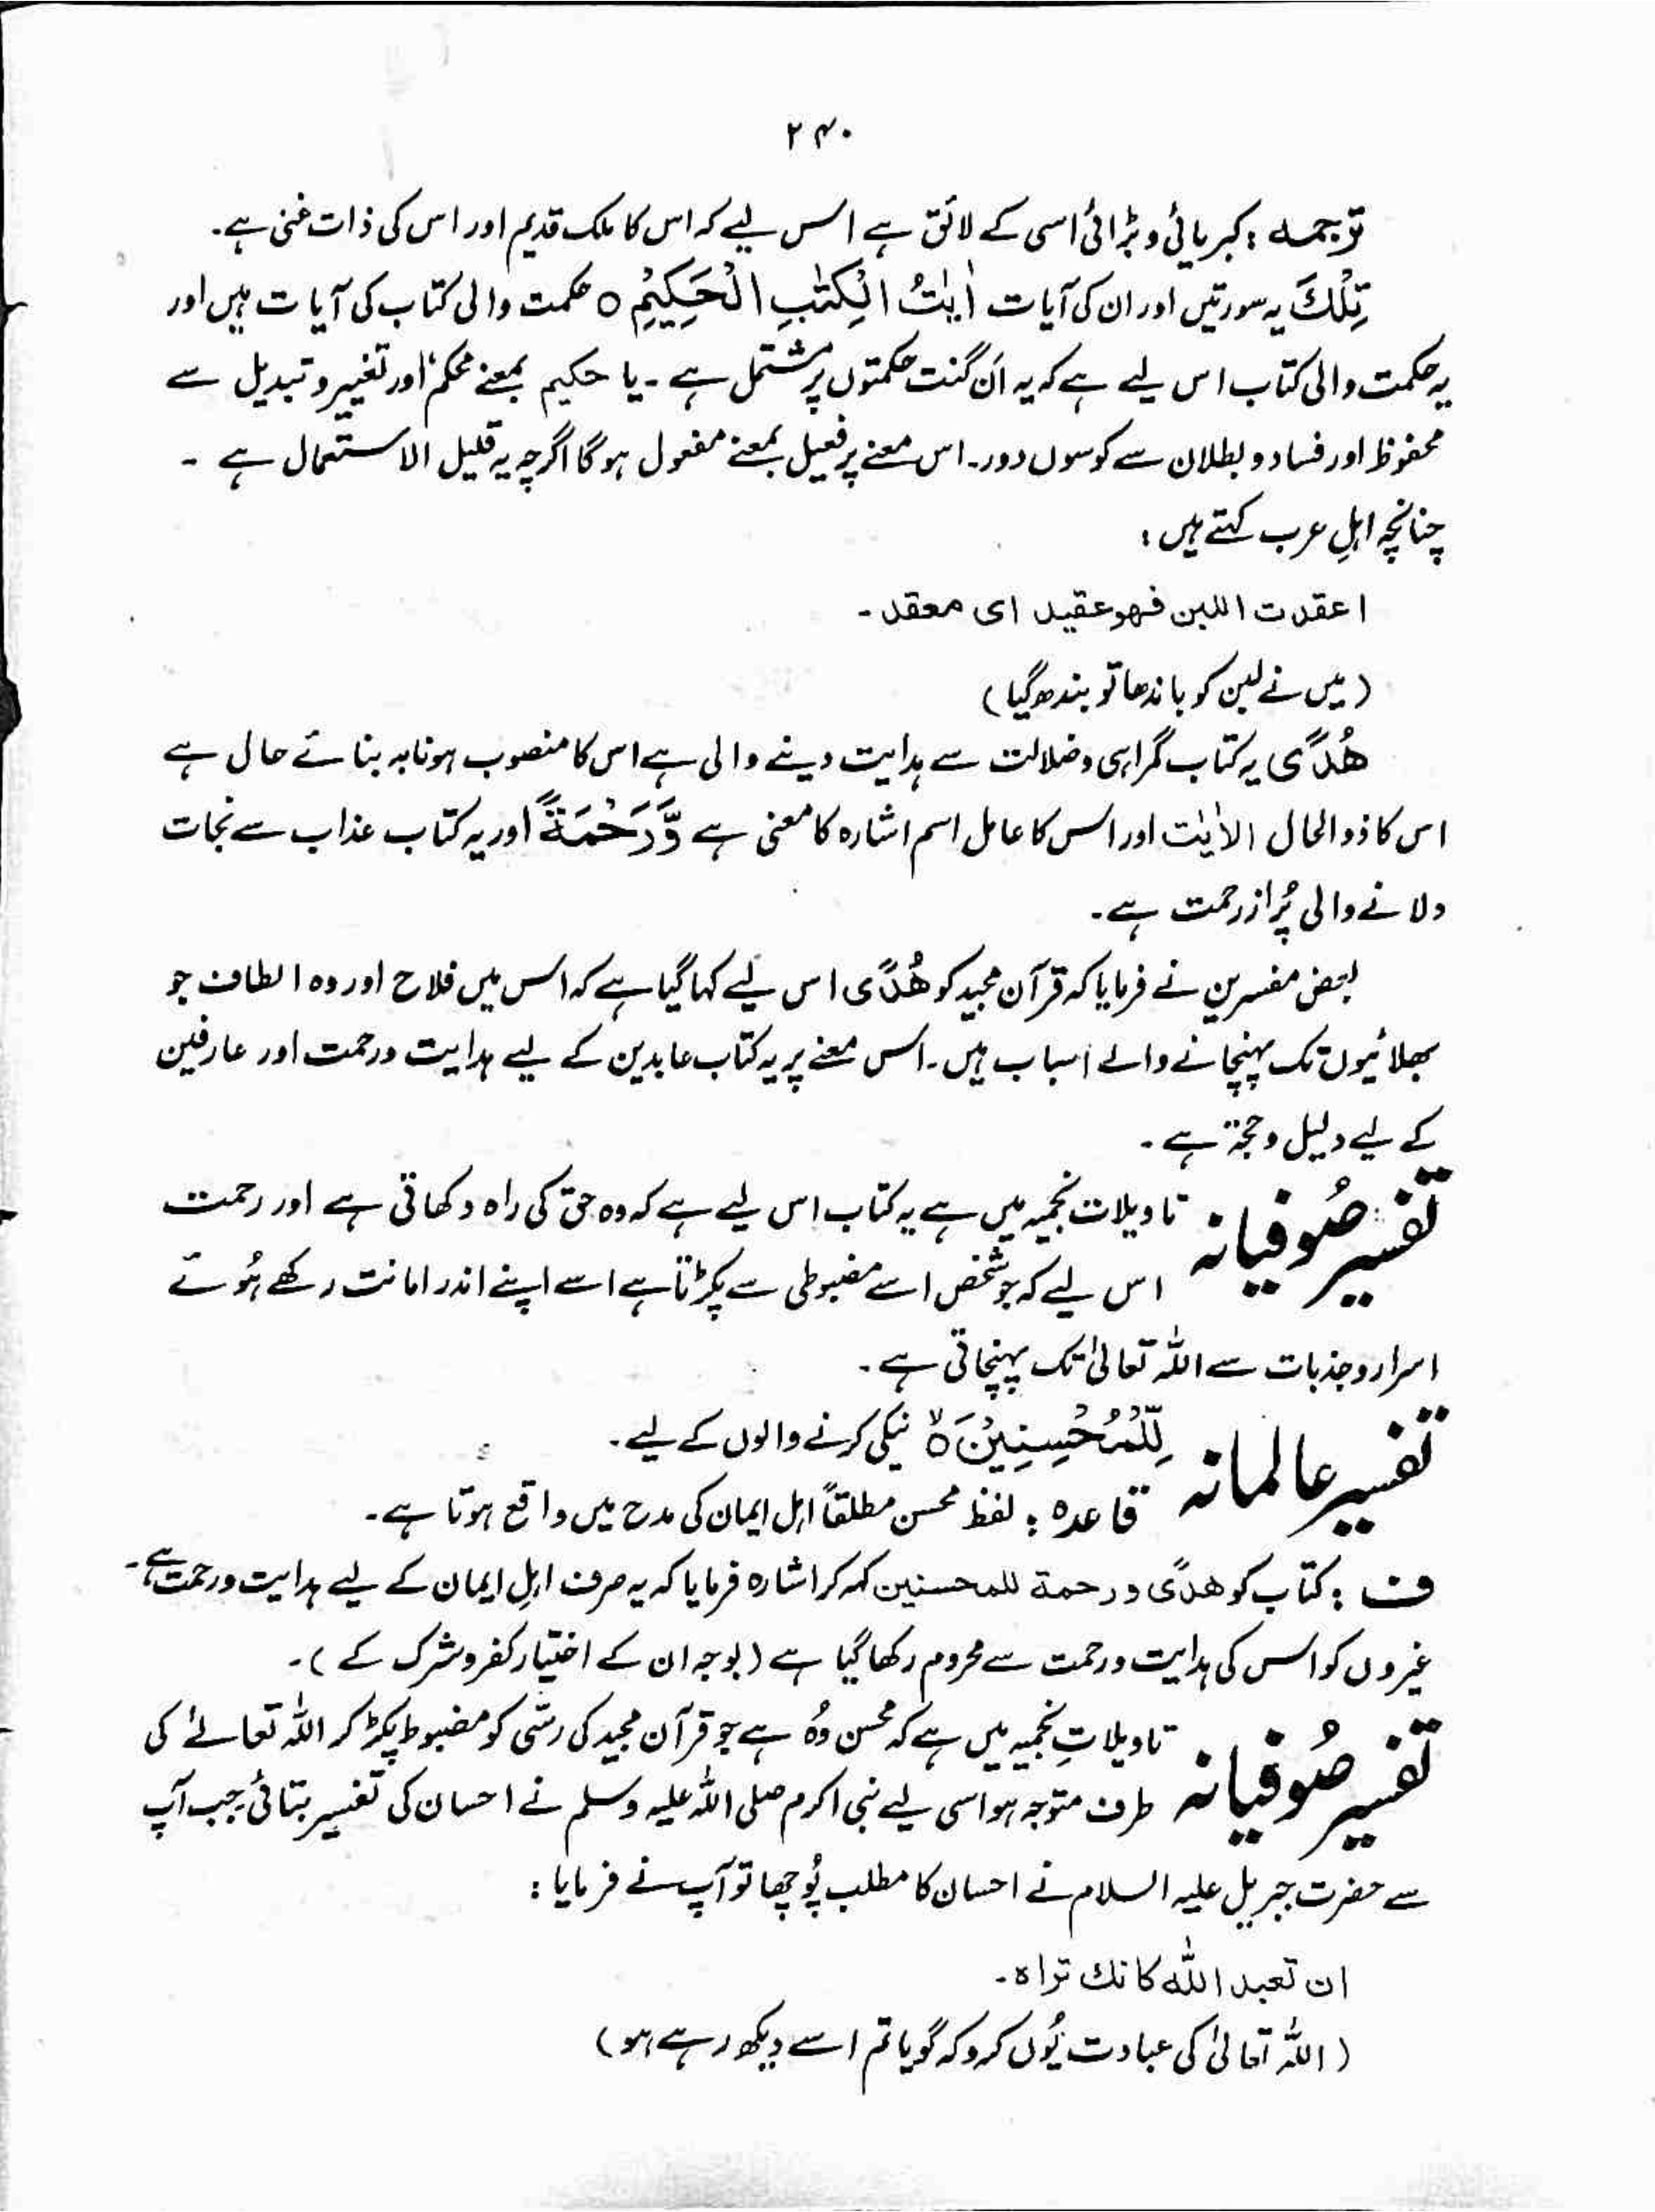 ۲۴۰
ترجمہ : کبریائی و بڑائی اسی کے لائق ہے اس لیے کہ اس کا ملک قدیم اور اس کی ذات غنی ہے۔
تِلْكَ یہ سورتیں اور ان کی آیات اٰیٰتُ الْكِتٰبِ الْحَكِيْمِ ○ حکمت والی کتاب کی آیات ہیں اور
یہ حکمت والی کتاب اس لیے ہے کہ یہ اَن گنت حکمتوں پر مشتمل ہے ۔ یا حکیم بمعنے محکم، اور تغییر و تبدیل سے
محفوظ اور فساد و بطلان سے کوسوں دور۔ اس معنے پر فعیل بمعنے مفعول ہوگا اگرچہ یہ قلیل الاستعمال ہے ۔
چنانچہ اہلِ عرب کہتے ہیں :
اعقدت اللبن فهو عقيد اى معقد ۔
(میں نے لبن کو باندھا تو بندھ گیا)
هُدًى یہ کتاب گمراہی و ضلالت سے ہدایت دینے والی ہے اس کا منصوب ہونا بہ بنائے حال ہے
اس کا ذوالحال الاٰیٰت اور اس کا عامل اسم اشارہ کا معنی ہے وَّرَحْمَةً اور یہ کتاب عذاب سے نجات
دلانے والی پُر از رحمت ہے۔
بعض مفسرین نے فرمایا کہ قرآن مجید کو هُدًى اس لیے کہا گیا ہے کہ اس میں فلاح اور وہ الطاف جو
بھلائیوں تک پہنچانے والے اسباب ہیں۔ اس معنے پر یہ کتاب عابدین کے لیے ہدایت و رحمت اور عارفین
کے لیے دلیل و حجۃ ہے ۔
تفسیر صُوفیانہ تاویلات نجمیہ میں ہے یہ کتاب اس لیے ہے کہ وہ حق کی راہ دکھاتی ہے اور رحمت
اس لیے کہ جو شخص اسے مضبوطی سے پکڑتا ہے اسے اپنے اندر امانت رکھے ہُوئے
اسرار و جذبات سے اللہ تعالیٰ تک پہنچاتی ہے ۔
تفسیر عالمانہ لِّلْمُحْسِنِيْنَ ○ۙ نیکی کرنے والوں کے لیے ۔
قاعدہ : لفظ محسن مطلقاً اہل ایمان کی مدح میں واقع ہوتا ہے۔
ف : کتاب کو هدًى و رحمة للمحسنين کہہ کر اشارہ فرمایا کہ یہ صرف اہلِ ایمان کے لیے ہدایت و رحمت ہے۔
غیروں کو اس کی ہدایت و رحمت سے محروم رکھا گیا ہے (بوجہ ان کے اختیار کفر و شرک کے)۔
تفسیر صُوفیانہ تاویلاتِ نجمیہ میں ہے کہ محسن وُہ ہے جو قرآن مجید کی رسّی کو مضبوط پکڑ کر اللہ تعالیٰ کی
طرف متوجہ ہوا اسی لیے نبی اکرم صلی اللہ علیہ وسلم نے احسان کی تفسیر بتائی جب آپ
سے حضرت جبریل علیہ السلام نے احسان کا مطلب پُوچھا تو آپ نے فرمایا :
ان تعبد الله كانك تراه ۔
(اللہ تعالیٰ کی عبادت یُوں کرو کہ گویا تم اسے دیکھ رہے ہو)